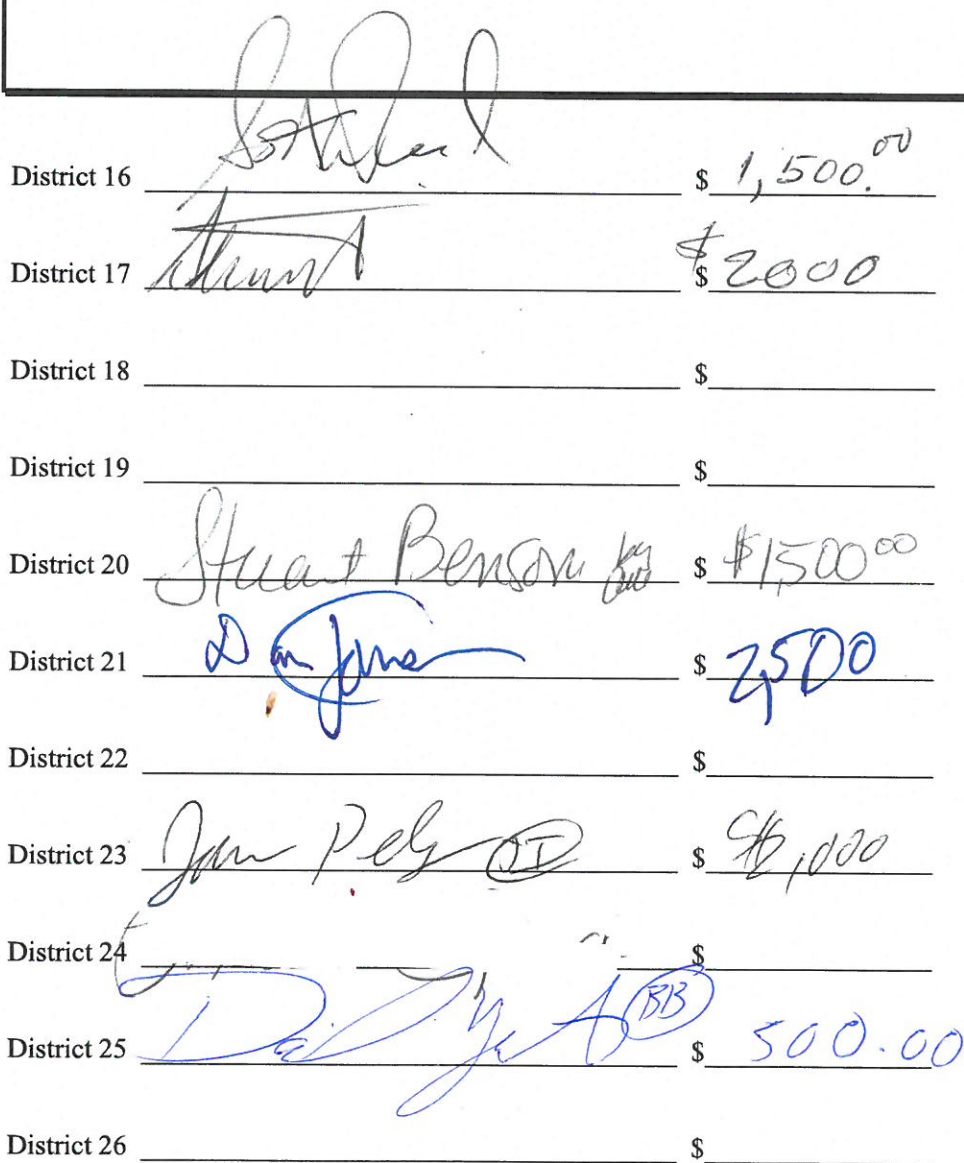 District 16 $ 1,500.00
District 17 $ $2000
District 18 $
District 19 $
District 20 Stuart Benson $ $1,500 00
District 21 Dan Jones $ 2,500
District 22 $
District 23 $
District 24 $
District 25 David BB $ 500.00
District 26 $